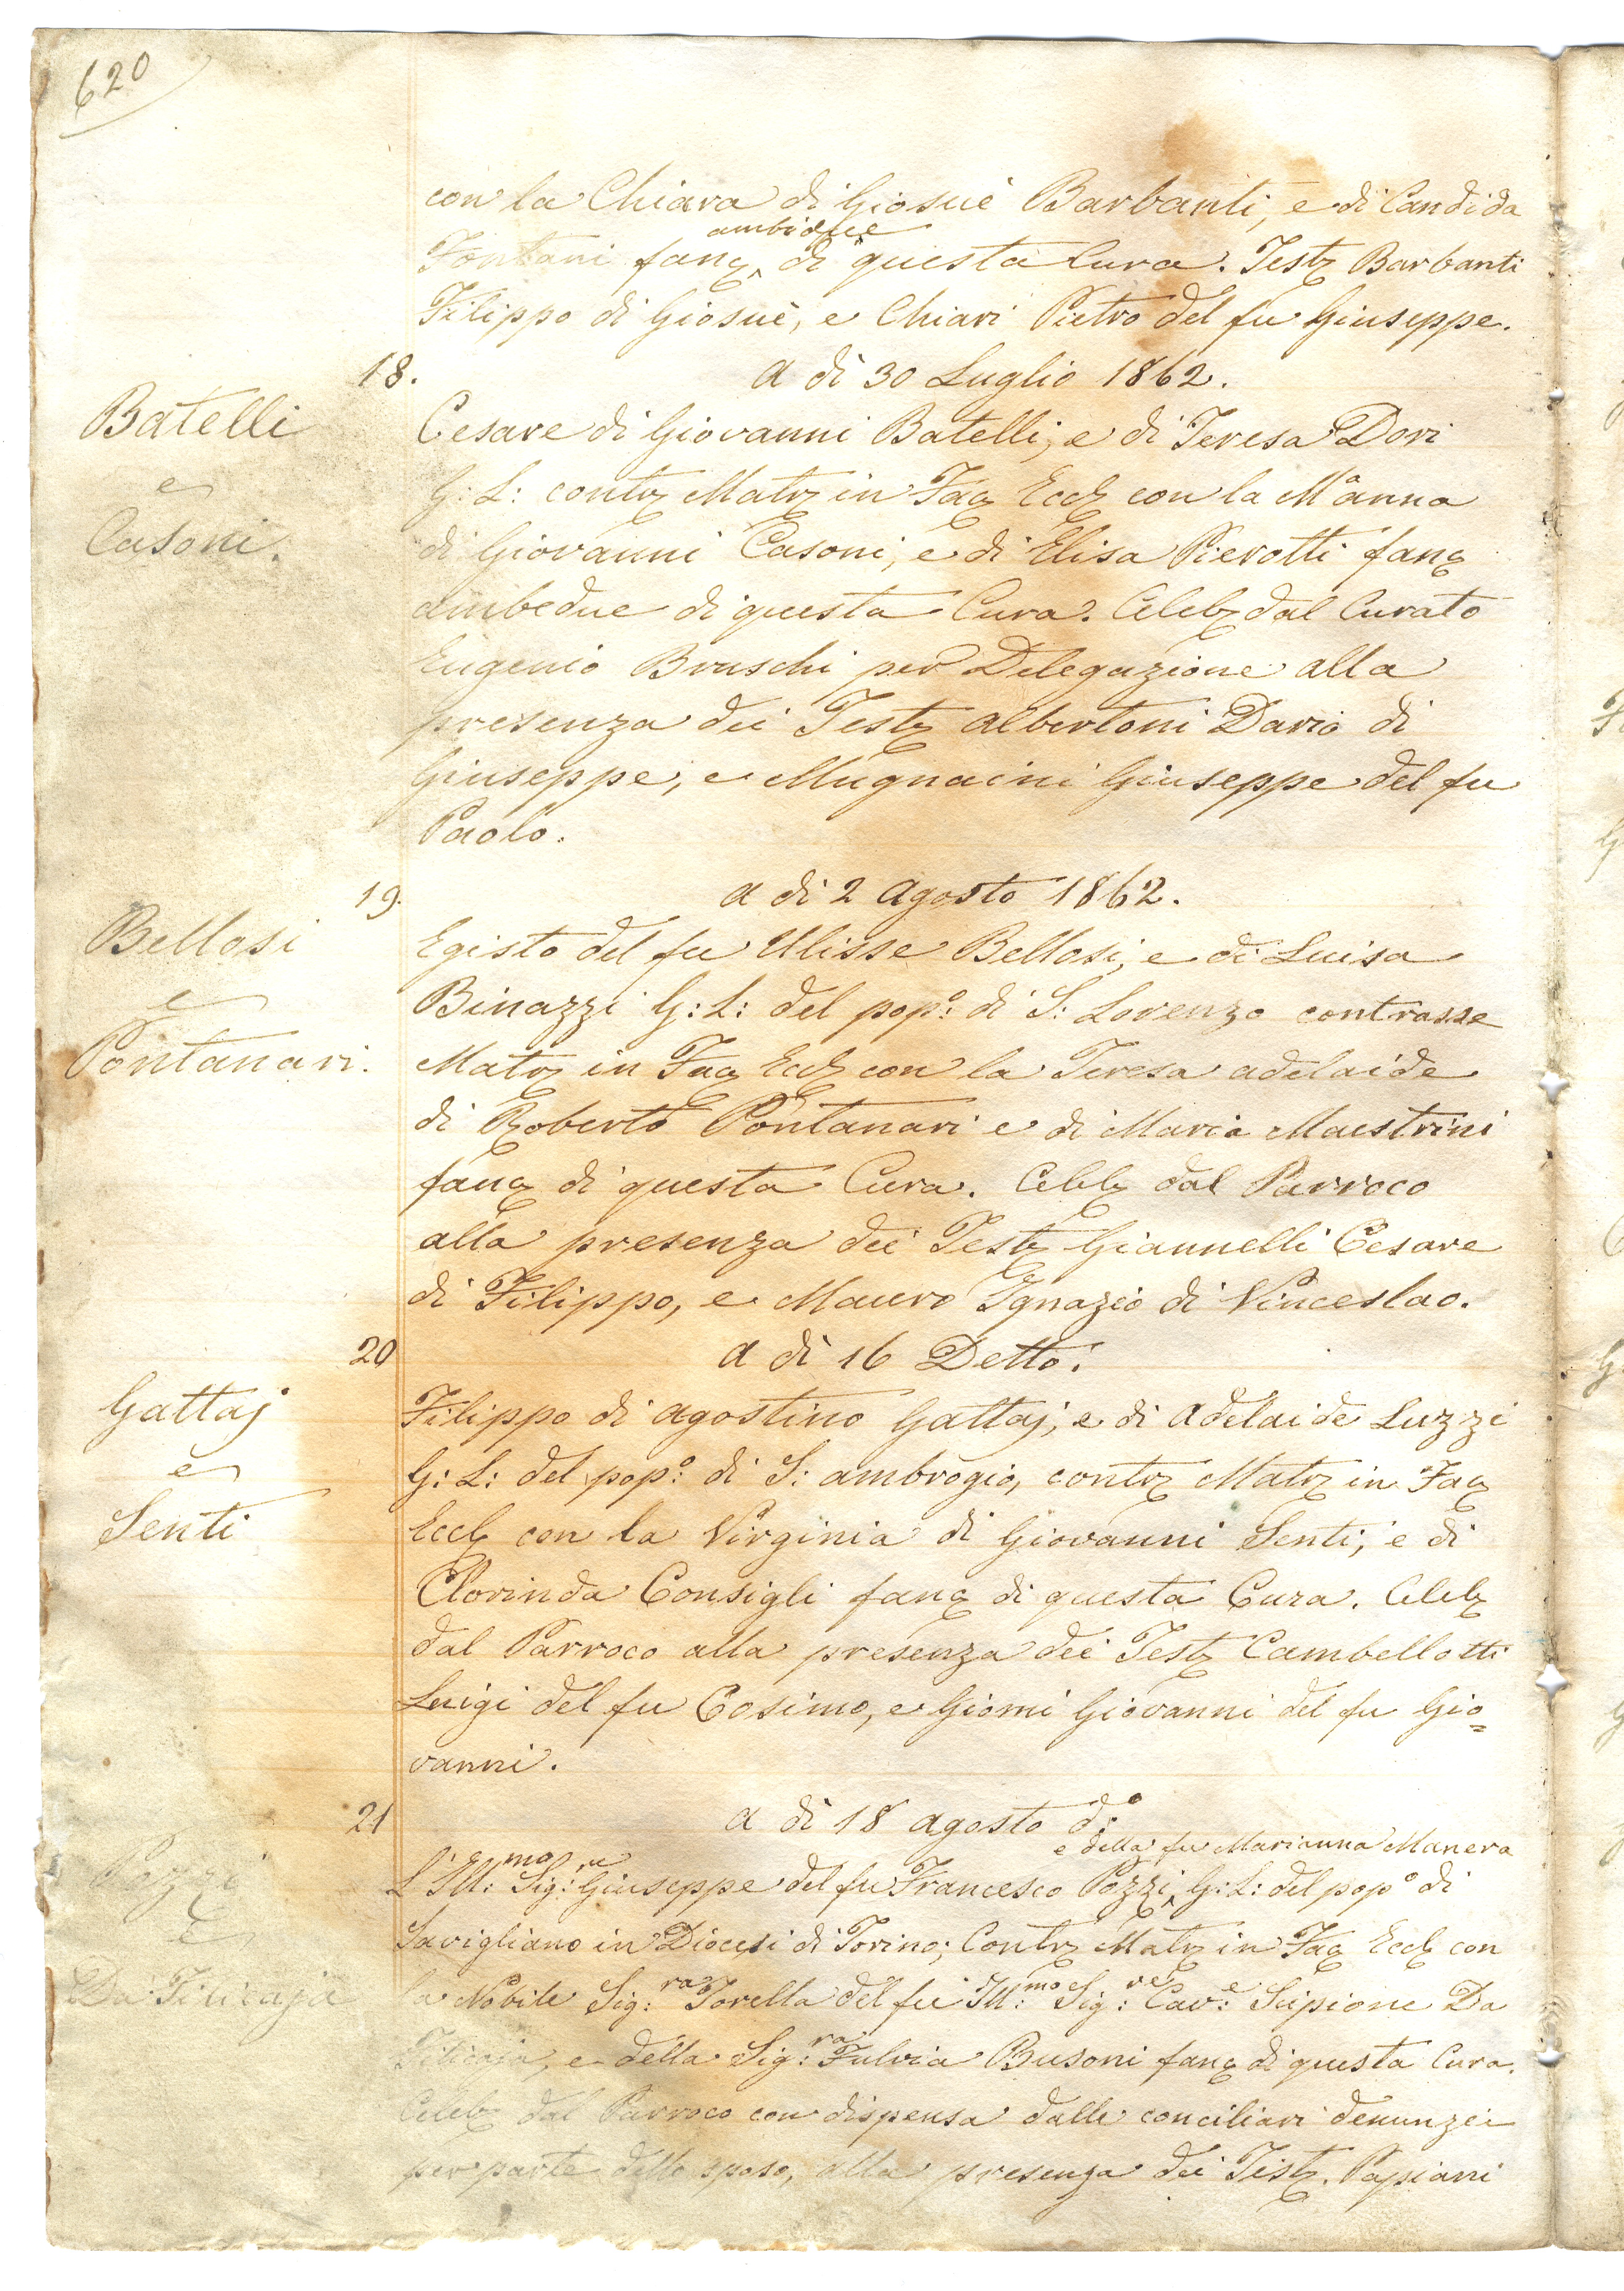 620
con la Chiara di Giosuè Barbanti, e di Candida
ambidue
Fontani fanꝫ ‸ di questa Cura. Testꝫ Barbanti
Filippo di Giosuè, e Chiari Pietro del fu Giuseppe.
18.
A dì 30 Luglio 1862.
Batelli
e
Casoni.
Cesare di Giovanni Batelli, e di Teresa Dori
G: L: contrꝫ Matrꝫ in Facꝫ Eccꝫ con la Mª anna
di Giovanni Casoni, e di Elisa Pierotti fanꝫ
ambedue di questa Cura. Celebꝫ dal Curato
Eugenio Bruschi per Delegazione alla
presenza dei Testꝫ Albertoni Dario di
Giuseppe, e Mugnaini Giuseppe del fu
Paolo.
19.
A dì 2 Agosto 1862.
Bellosi
e
Pontanari.
Egisto del fu Ulisse Bellosi, e di Luisa
Binazzi G: L: del popº: di S: Lorenzo contrasse
Matrꝫ in Facꝫ Eccꝫ con la Teresa Adelaide
di Roberto Pontanari e di Maria Maestrini
fanꝫ di questa Cura. Celebꝫ dal Parroco
alla presenza dei Testꝫ Giannelli Cesare
di Filippo, e Mauro Ignazio di Vinceslao.
20
A dì 16 Detto.
Gattaj
e
Senti
Filippo di Agostino Gattaj, e di Adelaide Luzzi
G: L: del popº: di S: Ambrogio, contrꝫ Matrꝫ in Facꝫ
Eccꝫ con la Virginia di Giovanni Senti, e di
Clorinda Consigli fanꝫ di questa Cura. Celebꝫ
dal Parroco alla presenza dei Testꝫ Cambellotti
Luigi del fu Cosimo, e Giomi Giovanni del fu Gio=
vanni.
21
A dì 18 Agosto d:º
e della fu Marianna Manera
Pozzi
e
Da Filicaja
L'Ill:mo Sig:re Giuseppe del fu Francesco Pozzi ‸ G: L: del popº di
Savigliano in Diocesi di Torino; Contrꝫ Matrꝫ in Facꝫ Eccꝫ con
la Nobile Sig:ra Torella del fu Ill:mo Sig:re Cav:e Scipione Da
Filicaja, e della Sig:ra Fulvia Busoni fanꝫ di questa Cura.
Celebꝫ dal Parroco con dispensa dalle conciliari denunzie
per parte dello sposo, alla presenza dei Testꝫ. Papiani